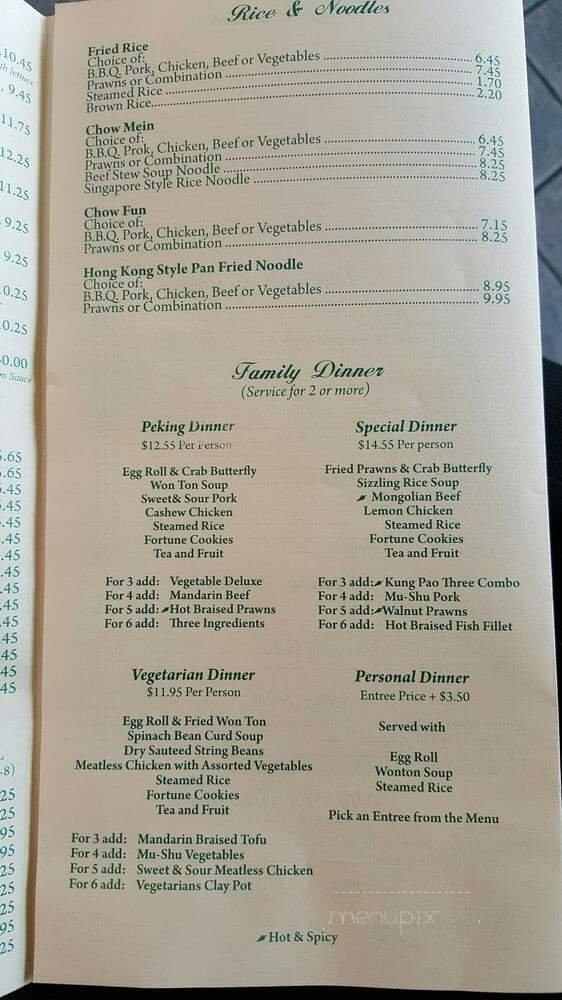 10.45
th lettuce
9.45
11.75
12.25
11.25
9.25
9.25
0.25
0.25
0.00
m Sauce
5.65
.65
.45
.45
.45
.45
.45
.45
.45
.45
.45
.45
.45
45
-8)
25
25
95
95
25
25
25
95
25
Rice & Noodles
Fried Rice
Choice of:
B.B.Q. Pork, Chicken, Beef or Vegetables 6.45
Prawns or Combination 7.45
Steamed Rice 1.70
Brown Rice 2.20
Chow Mein
Choice of:
B.B.Q. Prok, Chicken, Beef or Vegetables 6.45
Prawns or Combination 7.45
Beef Stew Soup Noodle 8.25
Singapore Style Rice Noodle 8.25
Chow Fun
Choice of:
B.B.Q. Pork, Chicken, Beef or Vegetables 7.15
Prawns or Combination 8.25
Hong Kong Style Pan Fried Noodle
Choice of:
B.B.Q. Pork, Chicken, Beef or Vegetables 8.95
Prawns or Combination 9.95
Family Dinner
(Service for 2 or more)
Peking Dinner
$12.55 Per Person
Egg Roll & Crab Butterfly
Won Ton Soup
Sweet& Sour Pork
Cashew Chicken
Steamed Rice
Fortune Cookies
Tea and Fruit
For 3 add: Vegetable Deluxe
For 4 add: Mandarin Beef
For 5 add: Hot Braised Prawns
For 6 add: Three Ingredients
Special Dinner
$14.55 Per person
Fried Prawns & Crab Butterfly
Sizzling Rice Soup
Mongolian Beef
Lemon Chicken
Steamed Rice
Fortune Cookies
Tea and Fruit
For 3 add: Kung Pao Three Combo
For 4 add: Mu-Shu Pork
For 5 add: Walnut Prawns
For 6 add: Hot Braised Fish Fillet
Vegetarian Dinner
$11.95 Per Person
Egg Roll & Fried Won Ton
Spinach Bean Curd Soup
Dry Sauteed String Beans
Meatless Chicken with Assorted Vegetables
Steamed Rice
Fortune Cookies
Tea and Fruit
For 3 add: Mandarin Braised Tofu
For 4 add: Mu-Shu Vegetables
For 5 add: Sweet & Sour Meatless Chicken
For 6 add: Vegetarians Clay Pot
Personal Dinner
Entree Price + $3.50
Served with
Egg Roll
Wonton Soup
Steamed Rice
Pick an Entree from the Menu
menupix
Hot & Spicy